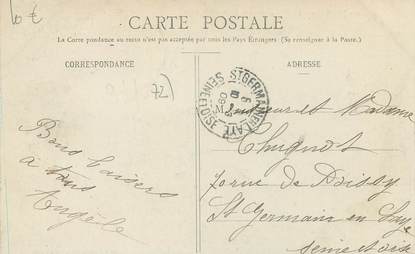 6 €
CARTE POSTALE
La Carte pondance au recto n'est pas acceptée par tous les Pays Étrangers. (Se renseigner à la Poste.)
CORRESPONDANCE
ADRESSE
72)
ST GERMAIN EN LAYE
SEINE ET OISE
Bons baisers
à tous
Angèle
Monsieur et Madame
Chugnot
rue de Poissy
St Germain en Laye
Seine et Oise